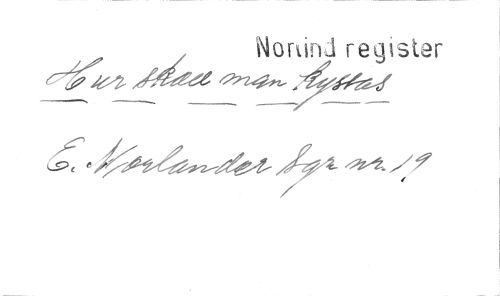 Norlind register
Hur skall man kyssas
E. Norlander Sgr nr. 19